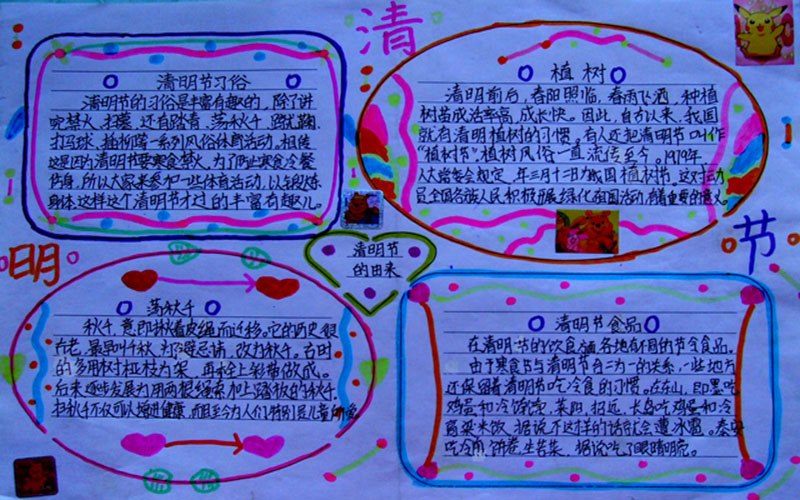 清
明
节
清明节习俗
清明节的习俗是丰富有趣的，除了讲
究禁火、扫墓，还有踏青、荡秋千、蹴鞠、
打马球、插柳等一系列风俗体育活动。相传
这是因为清明节要寒食禁火，为了防止寒食冷餐
伤身，所以大家来参加一些体育活动，以锻炼
身体。这样这个清明节才过的丰富有趣儿。
植树
清明前后，春阳照临，春雨飞洒，种植
树苗成活率高，成长快。因此，自古以来，我国
就有清明植树的习惯。有人还把清明节叫作
“植树节”。植树风俗一直流传至今。1979年，
人大常委会规定，年三月十二日为我国植树节。这对动
员全国各族人民积极开展绿化祖国活动，有着重要的意义。
清明节
的由来
荡秋千
秋千，意即揪着皮绳而迁移。它的历史很
古老，最早叫千秋，为了避忌讳，改为秋千。古时
的多用树桠枝为架，再栓上彩带做成。
后来逐步发展为用两根绳索加上踏板的秋千。
打秋千不仅可以增进健康，而且至今为人们特别是儿童所爱
清明节食品
在清明节的饮食方面，各地有不同的节令食品。
由于寒食节与清明节合二为一的关系，一些地方
还保留着清明节吃冷食的习惯。在山东，即墨吃
鸡蛋和冷饽饽，莱阳、招远、长岛吃鸡蛋和冷
高粱米饭，据说不这样的话就会遭冰雹。泰安
吃冷煎饼卷生苦菜，据说吃了眼睛明亮。